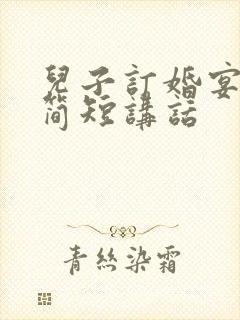 兒子訂婚宴
簡短講話
青絲染霜